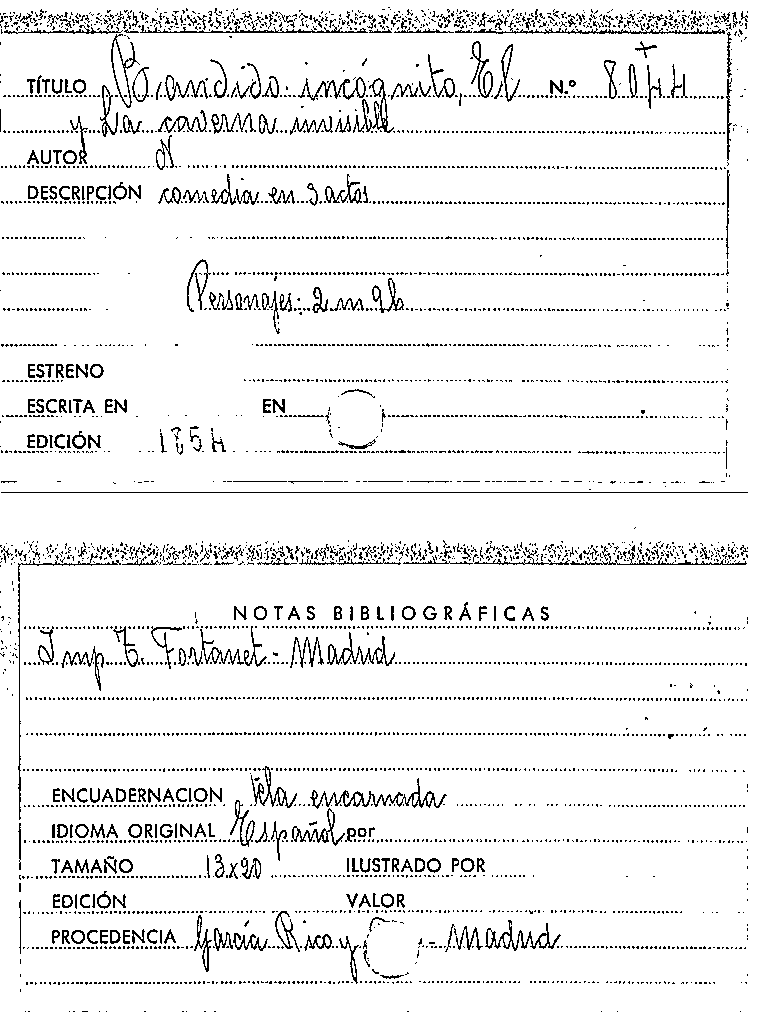 TÍTULO Bandido incógnito, El N.º 8044
y La caverna invisible
AUTOR N
DESCRIPCIÓN comedia en 3 actos
Personajes: 2 m 9 h
ESTRENO
ESCRITA EN EN
EDICIÓN 1854
NOTAS BIBLIOGRÁFICAS
Imp T. Fortanet - Madrid
ENCUADERNACION tela encarnada
IDIOMA ORIGINAL Español por
TAMAÑO 13x20 ILUSTRADO POR
EDICIÓN VALOR
PROCEDENCIA García Rico y - Madrid